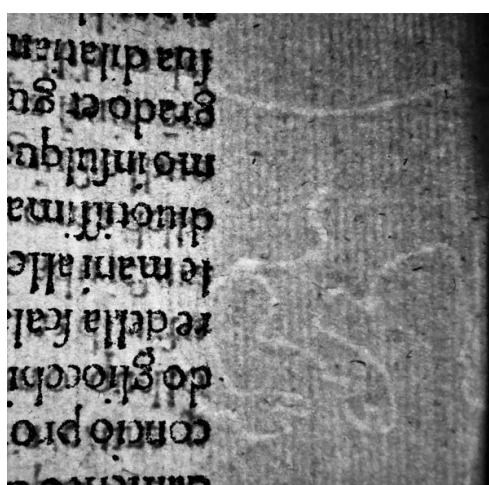 concio pro
do gliocchi
re della ſcala
te mani alle
diuotiſſima
mo inſulqua
grado et gu
ſua dilatiam